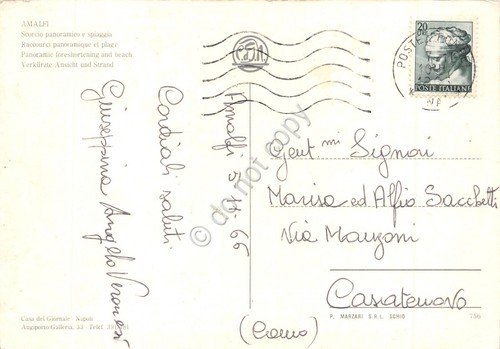 AMALFI
Scorcio panoramico e spiaggia
Raccourci panoramique et plage
Panoramic foreshortening and beach
Verkürzte Ansicht und Strand
20
POSTE ITALIANE
POSTE
Amalfi 5 
Cordiali saluti
Giuseppina Angelo Veronesi
Gent mi Signori
Marisa ed Alfio Sacchetti
Via Manzoni
Casatenovo
(Como)
do not copy
Casa del Giornale - Napoli
Angiporto Galleria, 33 Telef.
P. MARZARI S.R.L. SCHIO
756